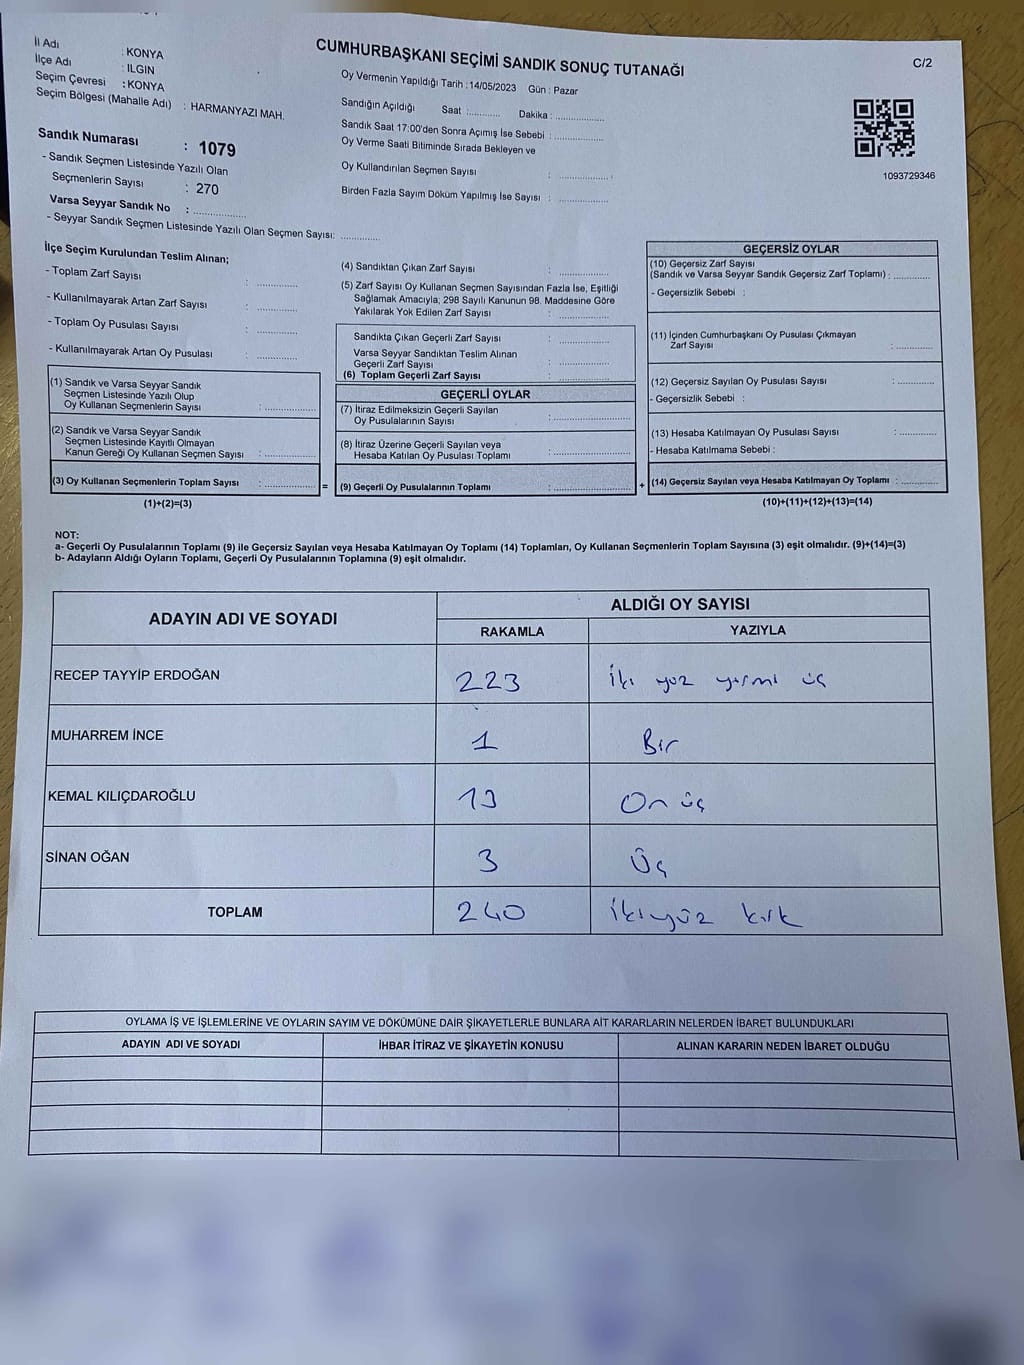 CUMHURBAŞKANI SEÇİMİ SANDIK SONUÇ TUTANAĞI
C/2
İl Adı : KONYA
İlçe Adı : ILGIN
Seçim Çevresi : KONYA
Seçim Bölgesi (Mahalle Adı) : HARMANYAZI MAH.
Sandık Numarası : 1079
- Sandık Seçmen Listesinde Yazılı Olan
Seçmenlerin Sayısı : 270
Varsa Seyyar Sandık No : ..................
- Seyyar Sandık Seçmen Listesinde Yazılı Olan Seçmen Sayısı: .............
Oy Vermenin Yapıldığı Tarih : 14/05/2023 Gün : Pazar
Sandığın Açıldığı Saat :........... Dakika : ................
Sandık Saat 17:00'den Sonra Açımış İse Sebebi : ................
Oy Verme Saati Bitiminde Sırada Bekleyen ve
Oy Kullandırılan Seçmen Sayısı : ................
Birden Fazla Sayım Döküm Yapılmış İse Sayısı : ................
1093729346
İlçe Seçim Kurulundan Teslim Alınan;
- Toplam Zarf Sayısı : .............
- Kullanılmayarak Artan Zarf Sayısı : .............
- Toplam Oy Pusulası Sayısı : .............
- Kullanılmayarak Artan Oy Pusulası : .............
(1) Sandık ve Varsa Seyyar Sandık
Seçmen Listesinde Yazılı Olup
Oy Kullanan Seçmenlerin Sayısı : ................
(2) Sandık ve Varsa Seyyar Sandık
Seçmen Listesinde Kayıtlı Olmayan
Kanun Gereği Oy Kullanan Seçmen Sayısı : ................
(3) Oy Kullanan Seçmenlerin Toplam Sayısı : ................
(1)+(2)=(3)
=
(4) Sandıktan Çıkan Zarf Sayısı : ................
(5) Zarf Sayısı Oy Kullanan Seçmen Sayısından Fazla İse, Eşitliği
Sağlamak Amacıyla; 298 Sayılı Kanunun 98. Maddesine Göre
Yakılarak Yok Edilen Zarf Sayısı : ................
Sandıkta Çıkan Geçerli Zarf Sayısı : ................
Varsa Seyyar Sandıktan Teslim Alınan
Geçerli Zarf Sayısı : ................
(6) Toplam Geçerli Zarf Sayısı : ................
GEÇERLİ OYLAR
(7) İtiraz Edilmeksizin Geçerli Sayılan
Oy Pusulalarının Sayısı : ................
(8) İtiraz Üzerine Geçerli Sayılan veya
Hesaba Katılan Oy Pusulası Toplamı : ................
(9) Geçerli Oy Pusulalarının Toplamı : ................
+
GEÇERSİZ OYLAR
(10) Geçersiz Zarf Sayısı
(Sandık ve Varsa Seyyar Sandık Geçersiz Zarf Toplamı) : ............
- Geçersizlik Sebebi :
(11) İçinden Cumhurbaşkanı Oy Pusulası Çıkmayan
Zarf Sayısı : ............
(12) Geçersiz Sayılan Oy Pusulası Sayısı : ............
- Geçersizlik Sebebi :
(13) Hesaba Katılmayan Oy Pusulası Sayısı : ............
- Hesaba Katılmama Sebebi :
(14) Geçersiz Sayılan veya Hesaba Katılmayan Oy Toplamı : ............
(10)+(11)+(12)+(13)=(14)
NOT:
a- Geçerli Oy Pusulalarının Toplamı (9) ile Geçersiz Sayılan veya Hesaba Katılmayan Oy Toplamı (14) Toplamları, Oy Kullanan Seçmenlerin Toplam Sayısına (3) eşit olmalıdır. (9)+(14)=(3)
b- Adayların Aldığı Oyların Toplamı, Geçerli Oy Pusulalarının Toplamına (9) eşit olmalıdır.
ADAYIN ADI VE SOYADI ALDIĞI OY SAYISI
RAKAMLA YAZIYLA
RECEP TAYYİP ERDOĞAN 223 İki yüz yirmi üç
MUHARREM İNCE 1 Bir
KEMAL KILIÇDAROĞLU 13 On üç
SİNAN OĞAN 3 Üç
TOPLAM 240 İkiyüz kırk
OYLAMA İŞ VE İŞLEMLERİNE VE OYLARIN SAYIM VE DÖKÜMÜNE DAİR ŞİKAYETLERLE BUNLARA AİT KARARLARIN NELERDEN İBARET BULUNDUKLARI
ADAYIN ADI VE SOYADI İHBAR İTİRAZ VE ŞİKAYETİN KONUSU ALINAN KARARIN NEDEN İBARET OLDUĞU